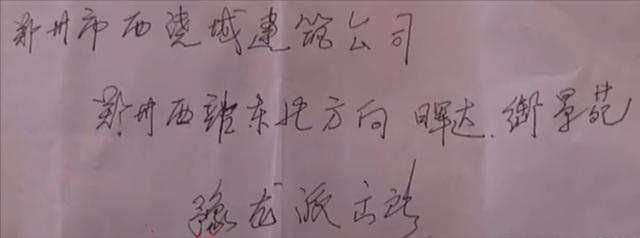 郑州市西绕城建筑公司
郑州西站东北方向 晖达.御景苑
豫龙派出所